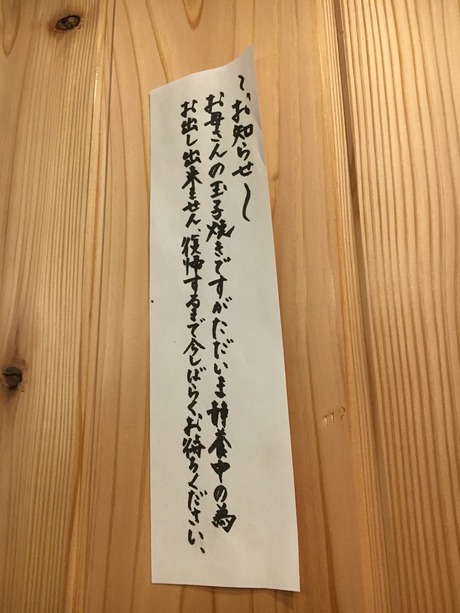 〜お知らせ〜
お母さんの玉子焼きですがただいま静養中の為
お出し出来ません、復帰するまで今しばらくお待ちください、